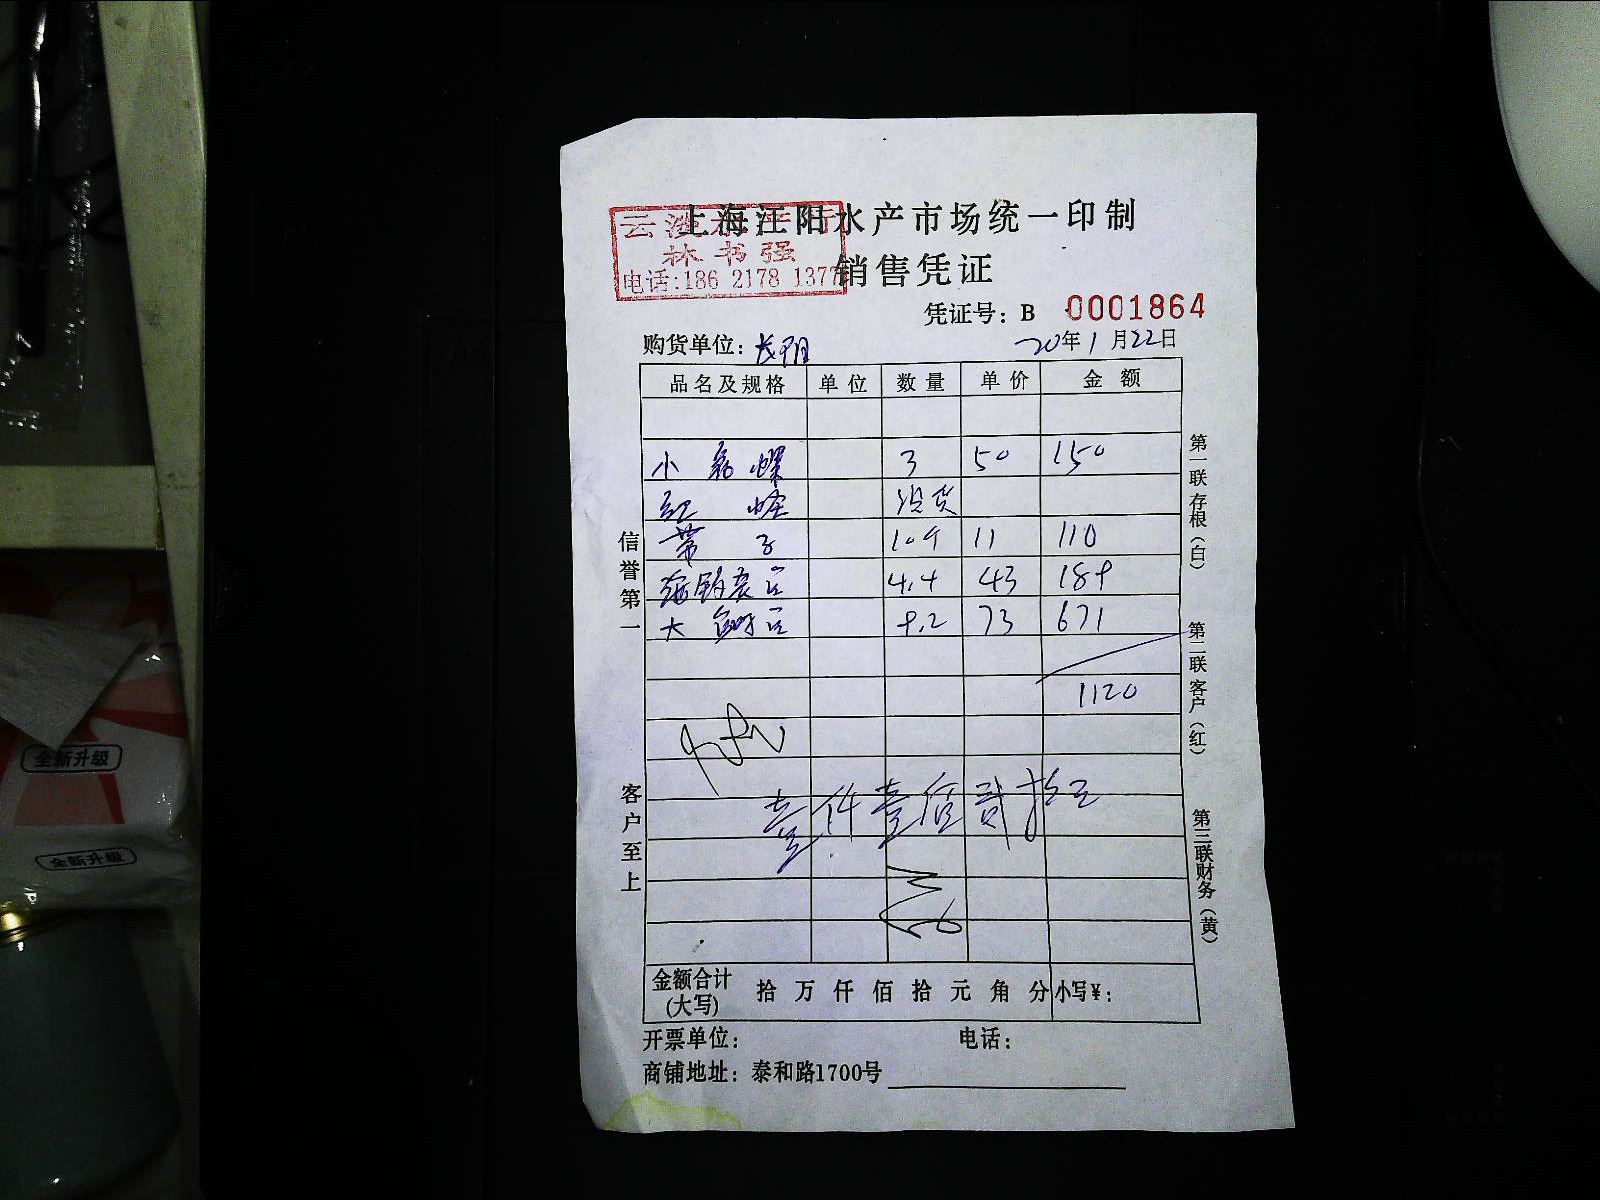 上海江阳水产市场统一印制
云
林书强
电话:186 2178 1377
销售凭证
凭证号: B 0001864
购货单位:
20年1月22日
品名及规格 单位 数量 单价 金额
小 螺 3 50 150
红 没货
带子 11 110
4.4 43 189
大 9.2 73 671
1120
壹仟壹佰贰拾元
金额合计(大写) 拾 万 仟 佰 拾 元 角 分 小写¥:
开票单位: 电话:
商铺地址: 泰和路1700号
信誉第一
客户至上
第一联存根(白)
第二联客户(红)
第三联财务(黄)
全新升级
全新升级